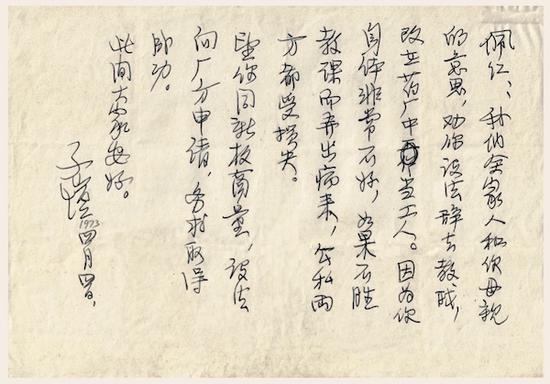 佩红:我代全家人和你母亲
的意思,劝你设法辞去教职,
改在药厂中当工人。因为你
身体非常不好,如果不胜
教课而弄出病来,公私两
方都受损失。
望你同新枚商量,设法
向厂方申请,务求取得
成功。
此间大家安好。
子恺 1973四月四日,